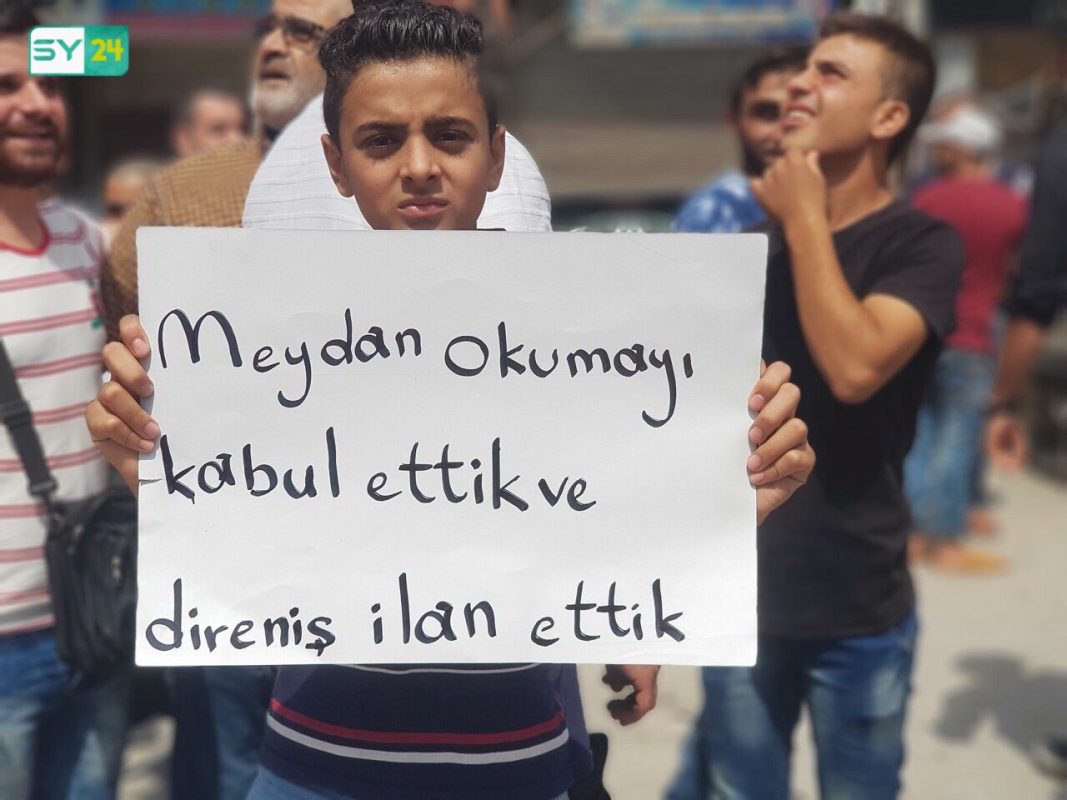 SY24
Meydan okumayı
kabul ettik ve
direniş ilan ettik